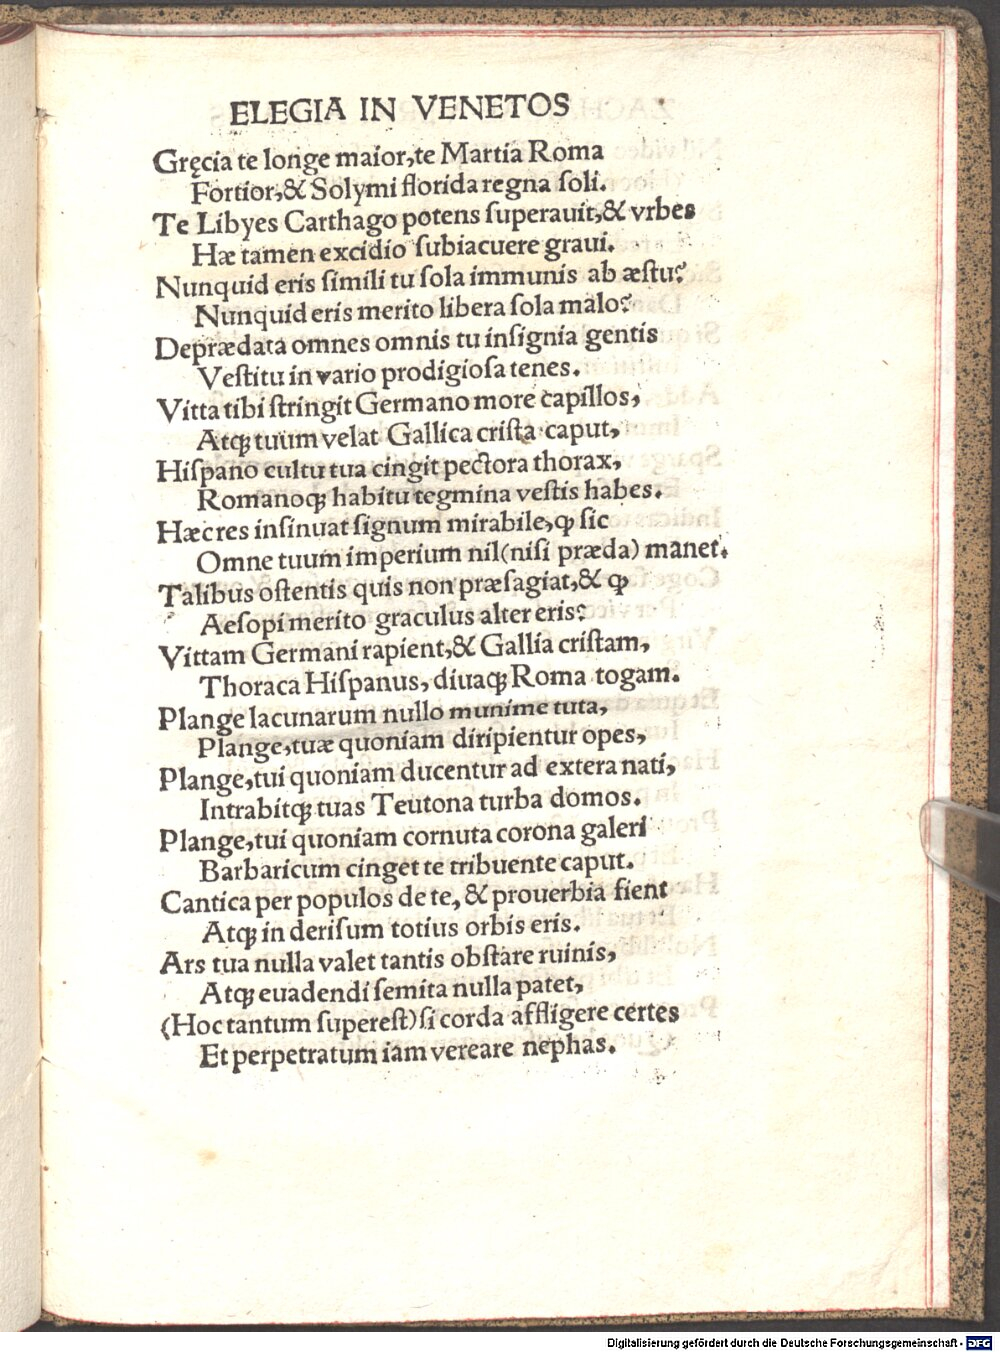 ELEGIA IN VENETOS
Gręcia te longe maior,te Martia Roma
Fortior,& Solymi florida regna ſoli.
Te Libyes Carthago potens ſuperauit,& vrbes
Hæ tamen excidio ſubiacuere graui.
Nunquid eris ſimili tu ſola immunis ab æſtu?
Nunquid eris merito libera ſola malo?
Deprædata omnes omnis tu inſignia gentis
Veſtitu in vario prodigioſa tenes.
Vitta tibi ſtringit Germano more capillos,
Atqꝫ tuum velat Gallica criſta caput,
Hiſpano cultu tua cingit pectora thorax,
Romanoqꝫ habitu tegmina veſtis habes.
Hæc res inſinuat ſignum mirabile,ꝙ ſic
Omne tuum imperium nil(niſi præda) manet.
Talibus oſtentis quis non præſagiat,& ꝙ
Aeſopi merito graculus alter eris?
Vittam Germani rapient,& Gallia criſtam,
Thoraca Hiſpanus, diuaqꝫ Roma togam.
Plange lacunarum nullo munime tuta,
Plange,tuæ quoniam diripientur opes,
Plange,tui quoniam ducentur ad extera nati,
Intrabitqꝫ tuas Teutona turba domos.
Plange,tui quoniam cornuta corona galeri
Barbaricum cinget te tribuente caput.
Cantica per populos de te, & prouerbia fient
Atqꝫ in deriſum totius orbis eris.
Ars tua nulla valet tantis obſtare ruinis,
Atqꝫ euadendi ſemita nulla patet,
(Hoc tantum ſupereſt)ſi corda affligere certes
Et perpetratum iam vereare nephas.
Digitalisierung gefördert durch die Deutsche Forschungsgemeinschaft - DFG